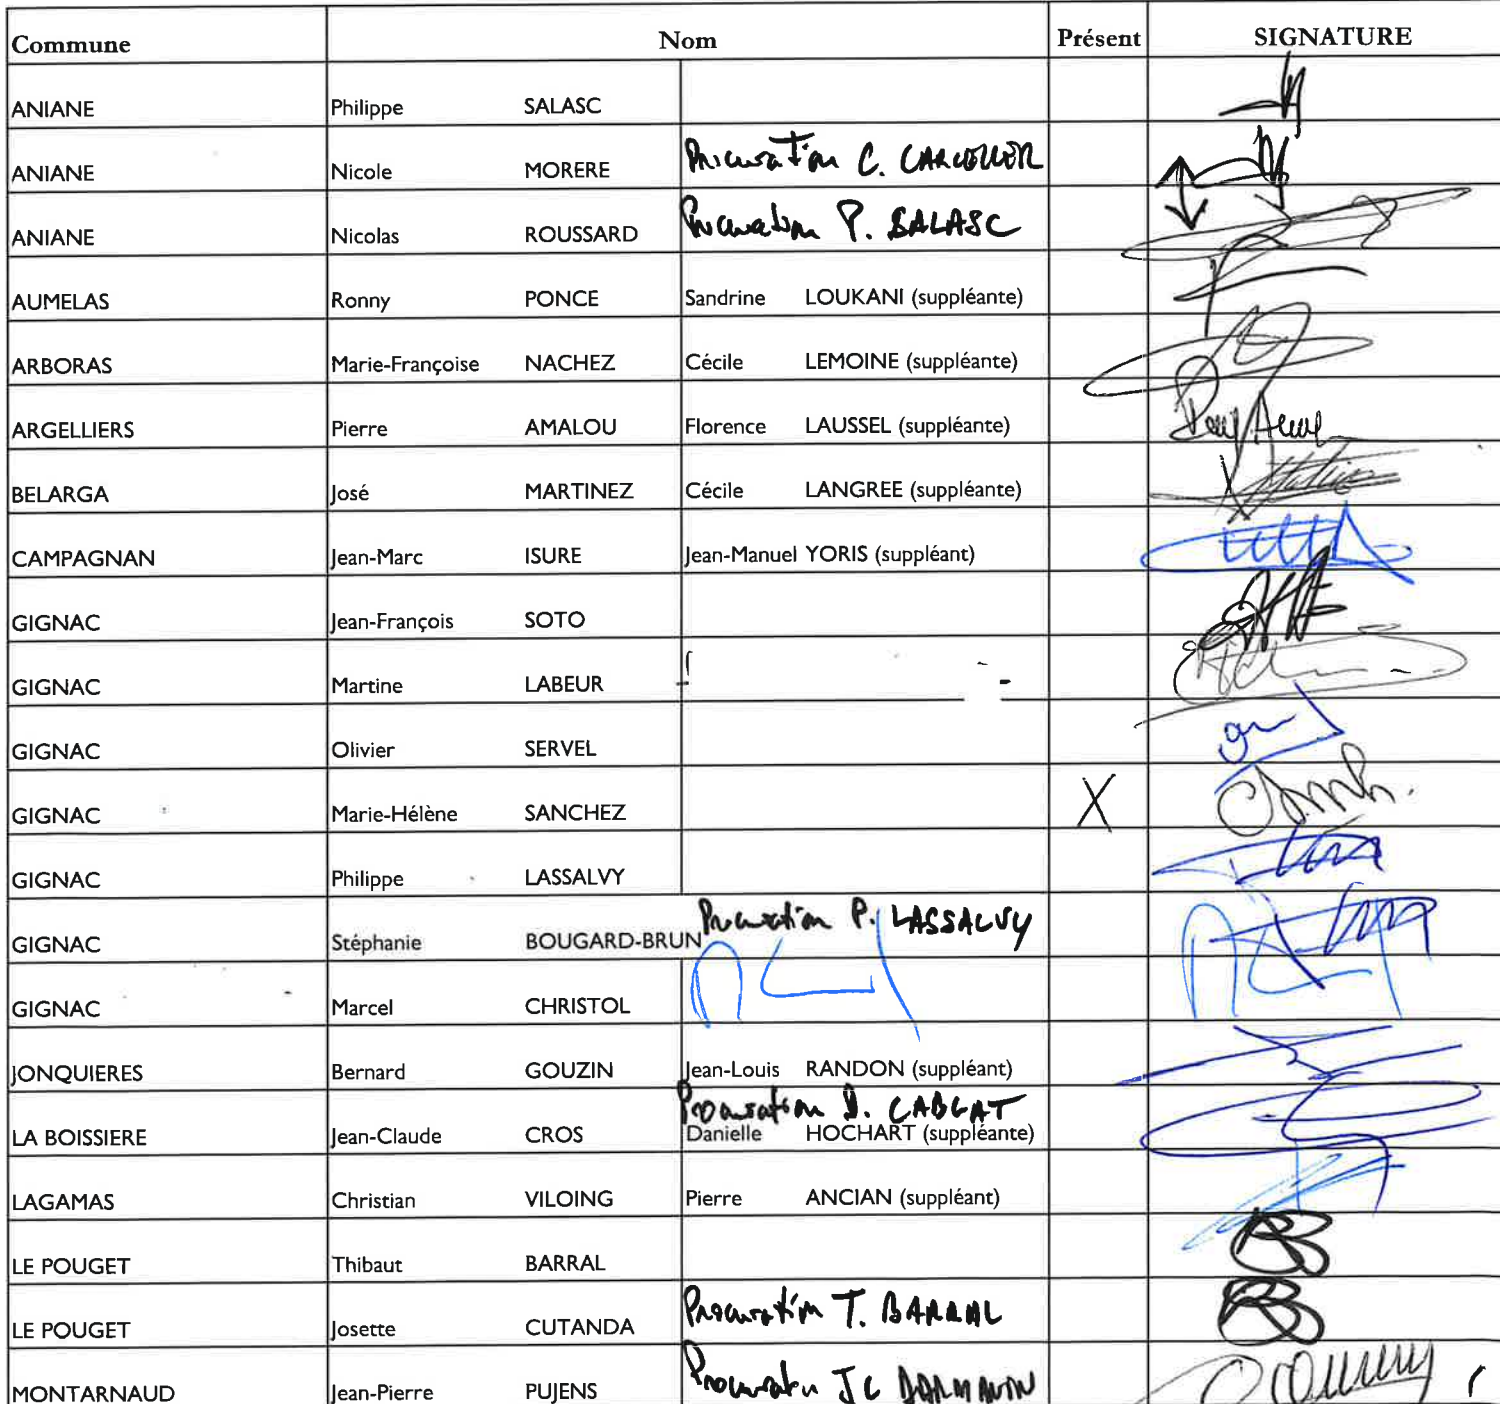 Commune Nom Présent SIGNATURE
ANIANE Philippe SALASC
ANIANE Nicole MORERE Procuration C. CARCELLER
ANIANE Nicolas ROUSSARD Procuration P. SALASC
AUMELAS Ronny PONCE Sandrine LOUKANI (suppléante)
ARBORAS Marie-Françoise NACHEZ Cécile LEMOINE (suppléante)
ARGELLIERS Pierre AMALOU Florence LAUSSEL (suppléante)
BELARGA José MARTINEZ Cécile LANGREE (suppléante)
CAMPAGNAN Jean-Marc ISURE Jean-Manuel YORIS (suppléant)
GIGNAC Jean-François SOTO
GIGNAC Martine LABEUR
GIGNAC Olivier SERVEL
GIGNAC Marie-Hélène SANCHEZ X
GIGNAC Philippe LASSALVY
GIGNAC Stéphanie BOUGARD-BRUN Procuration P. LASSALVY
GIGNAC Marcel CHRISTOL
JONQUIERES Bernard GOUZIN Jean-Louis RANDON (suppléant)
Procuration D. CABLAT
LA BOISSIERE Jean-Claude CROS Danielle HOCHART (suppléante)
LAGAMAS Christian VILOING Pierre ANCIAN (suppléant)
LE POUGET Thibaut BARRAL
LE POUGET Josette CUTANDA Procuration T. BARRAL
MONTARNAUD Jean-Pierre PUJENS Procuration JC DARMANIN